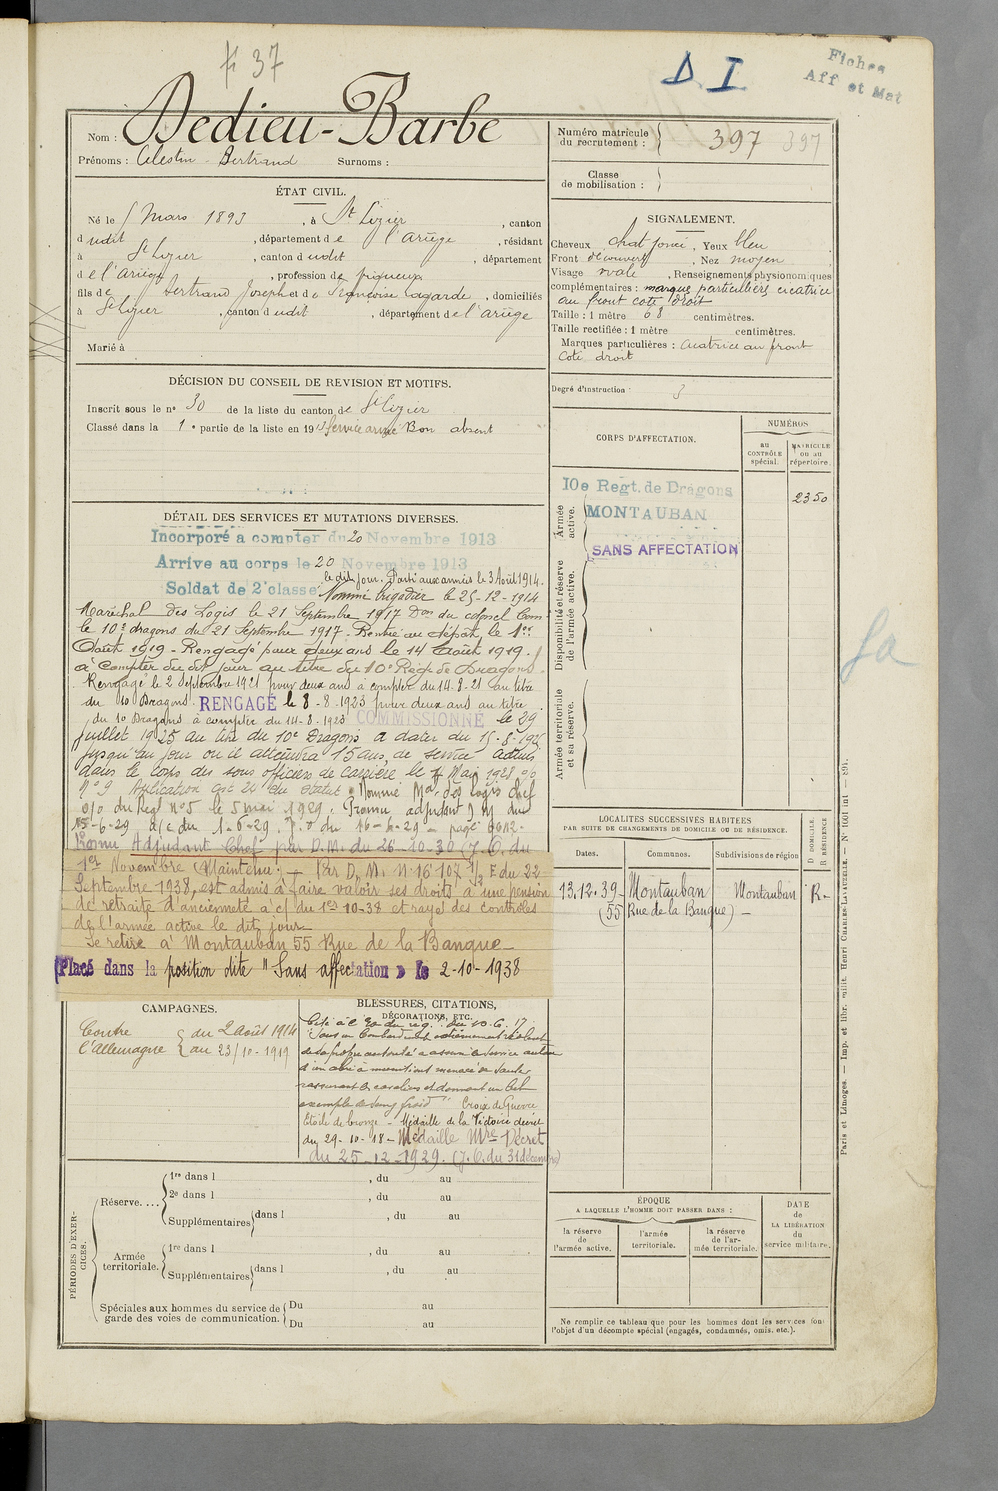 37
D. I.
Fiches
Aff et Mat
Nom : Dedieu-Barbe
Prénoms : Célestin - Bertrand Surnoms :
Numéro matricule du recrutement : 397 397
Classe de mobilisation :
ÉTAT CIVIL.
Né le 5 Mars 1893, à St Lizier, canton
dudit, département de l'ariège, résidant
à St Lizier, canton dudit, département
de l'ariège, profession de
fils de Bertrand Joseph et de Françoise Lagarde, domiciliés
à St Lizier, canton dudit, département de l'ariège
Marié à
SIGNALEMENT.
Cheveux chat foncé, Yeux bleu
Front découvert, Nez moyen
Visage ovale, Renseignements physionomiques
complémentaires : marques particulières cicatrice
au front coté droit
Taille : 1 mètre 68 centimètres.
Taille rectifiée : 1 mètre centimètres.
Marques particulières : Cicatrice au front
Coté droit
Degré d'instruction : 3
DÉCISION DU CONSEIL DE REVISION ET MOTIFS.
Inscrit sous le no 30 de la liste du canton de St Lizier
Classé dans la 1e partie de la liste en 1913 Service armé Bon absent
CORPS D'AFFECTATION.
NUMÉROS
au CONTRÔLE spécial.
MATRICULE ou au répertoire.
Armée active.
10e Régt. de Dragons
MONTAUBAN
2350
SANS AFFECTATION
Disponibilité et réserve de l'armée active.
Armée territoriale et sa réserve.
DÉTAIL DES SERVICES ET MUTATIONS DIVERSES.
Incorporé à compter du 20 Novembre 1913
Arrivé au corps le 20 Novembre 1913
Soldat de 2e classe le dit jour. Parti aux armées le 3 Août 1914.
Nommé brigadier le 25-12-1914
Maréchal des Logis le 21 Septembre 1917 Don du colonel Comt
le 10e dragons du 21 Septembre 1917. Rentré au dépôt, le 1er
Août 1919 - Rengagé pour deux ans le 14 Août 1919.
à compter du dit jour au titre du 10e Régt de Dragons.
Rengagé le 2 Septembre 1921 pour deux ans à compter du 14-8-21 au titre
du 10 Dragons. RENGAGÉ le 8-8-1923 pour deux ans au titre
du 10 Dragons à compter du 14-8-1923 COMMISSIONNÉ le 29
juillet 1925 au titre du 10e Dragons à dater du 15-8-1925
jusqu'au jour où il atteindra 15 ans de service Admis
dans le corps des sous officiers de carrière le Mai 1928
No 9 Application art 20 du Statut Nommé Mal des logis chef
o/o du Régt no 5 le 5 mai 1929. Promu adjudant du
15-6-29 a/c du 1-6-29. J.O du 16-6-29 - page
Promu Adjudant Chef par D.M. du 26-10-30 (J.O. du
1er Novembre (Maintenu). - Par D.M. No 16107 1/2 E du 22
Septembre 1938, est admis à faire valoir ses droits à une pension
de retraite d'ancienneté à c/ du 1er 10-38 et rayé des contrôles
de l'armée active le dit jour
Se retire à Montauban 55 Rue de la Banque
Placé dans la position dite "Sans affectation" le 2-10-1938
LOCALITÉS SUCCESSIVES HABITÉES
PAR SUITE DE CHANGEMENTS DE DOMICILE OU DE RÉSIDENCE.
Dates. Communes. Subdivisions de région
D DOMICILE. R RÉSIDENCE
13.12.39 Montauban Montauban R.
(55 Rue de la Banque)
CAMPAGNES.
Contre l'Allemagne { du 2 août 1914
au 23/10-1919
BLESSURES, CITATIONS,
DÉCORATIONS, ETC.
Cité à l'o du rég. du 10.6.17
"Sous un bombardement extrêmement violent
de sa propre autorité a assuré le service autour
d'un abri à munitions menacé de sauter
rassurant les cavaliers et donnant un bel
exemple de sang froid" Croix de Guerre
Etoile de bronze - Médaille de la Victoire décret
du 29-10-18 - Médaille Mre Décret
du 25-12-1929. (J.O. du 31 décembre)
PÉRIODES D'EXERCICES.
Réserve....
1re dans l , du au
2e dans l , du au
Supplémentaires dans l , du au
Armée territoriale.
1re dans l , du au
Supplémentaires dans l , du au
Spéciales aux hommes du service de garde des voies de communication.
Du au
Du au
ÉPOQUE
A LAQUELLE L'HOMME DOIT PASSER DANS :
la réserve de l'armée active.
l'armée territoriale.
la réserve de l'armée territoriale.
DATE de LA LIBÉRATION du service militaire.
Ne remplir ce tableau que pour les hommes dont les services font
l'objet d'un décompte spécial (engagés, condamnés, omis, etc.).
Paris et Limoges. — Imp. et libr. milit. Henri CHARLES-LAVAUZELLE. — No 1001 int — 891.